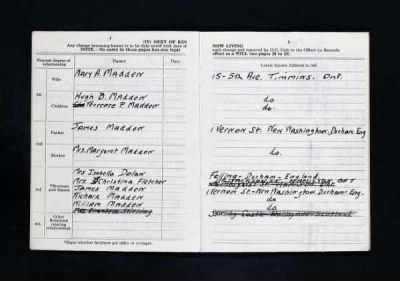 4
(IV) NEXT OF KIN
Any change becoming known is to be duly noted with date of
NOTE.—No entry in these pages has any legal
Nearest degree of relationship
Names
Date
Wife
Mary A. Madden
Children
Hugh B. Madden
Terence P. Madden
Father
James Madden
Mother
Mrs. Margaret Madden
Brothers and Sisters
Mrs Isabella Dolan
Mrs Christina Fletcher
James Madden
Richard Madden
William Madden
Other Relations (stating relationship)
*Specify whether brothers are older or younger.
5
NOW LIVING
each change and reported by O.C. Unit to the Officer i/c Records.
effect as a WILL (see pages 20 to 23)
Latest known Address in full
15-5th Ave. Timmins. Ont.
do
do
1 Vernon St. New Washington, Durham Eng
do.
Felling-Durham-England
1 Vernon St.-New Washington Durham-Eng.
do
do